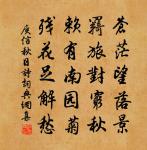 蒼茫望落景
羇旅對窮秋
賴有南园菊
殘花足解愁
庾信秋日詩詞典網集